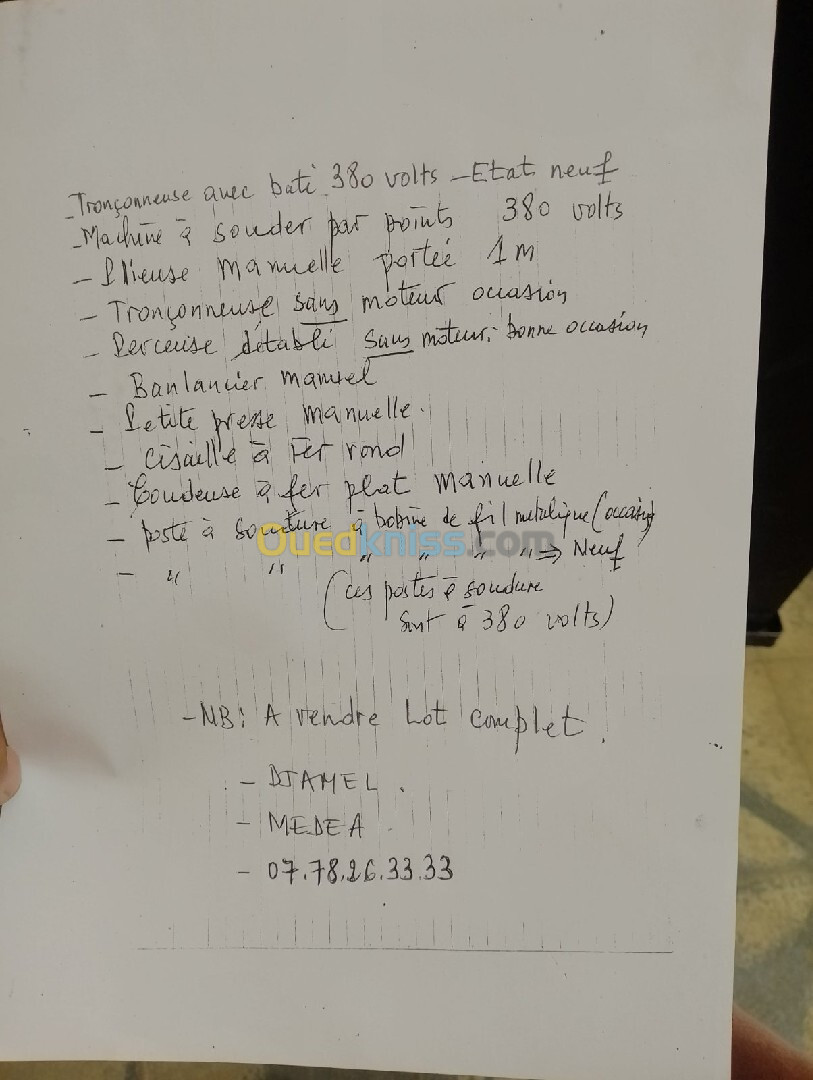 - Tronçonneuse avec bati 380 volts - Etat neuf
- Machine à souder par points 380 volts
- Plieuse Manuelle porteé 1m
- Tronçonneuse sans moteur occasion
- Perceuse d'établi sans moteur. bonne occasion
- Banlancier manuel
- Petite presse manuelle.
- Cisaille à Fer rond
- Coudeuse à fer plat manuelle
- poste à soudure à bobine de fil metalique (occasion)
- " " " " " " => Neuf
(ces postes à soudure
sont à 380 volts)
Ouedkniss.com
- NB: A vendre Lot complet.
- DJAMEL.
- MEDEA
- 07.78.26.33.33